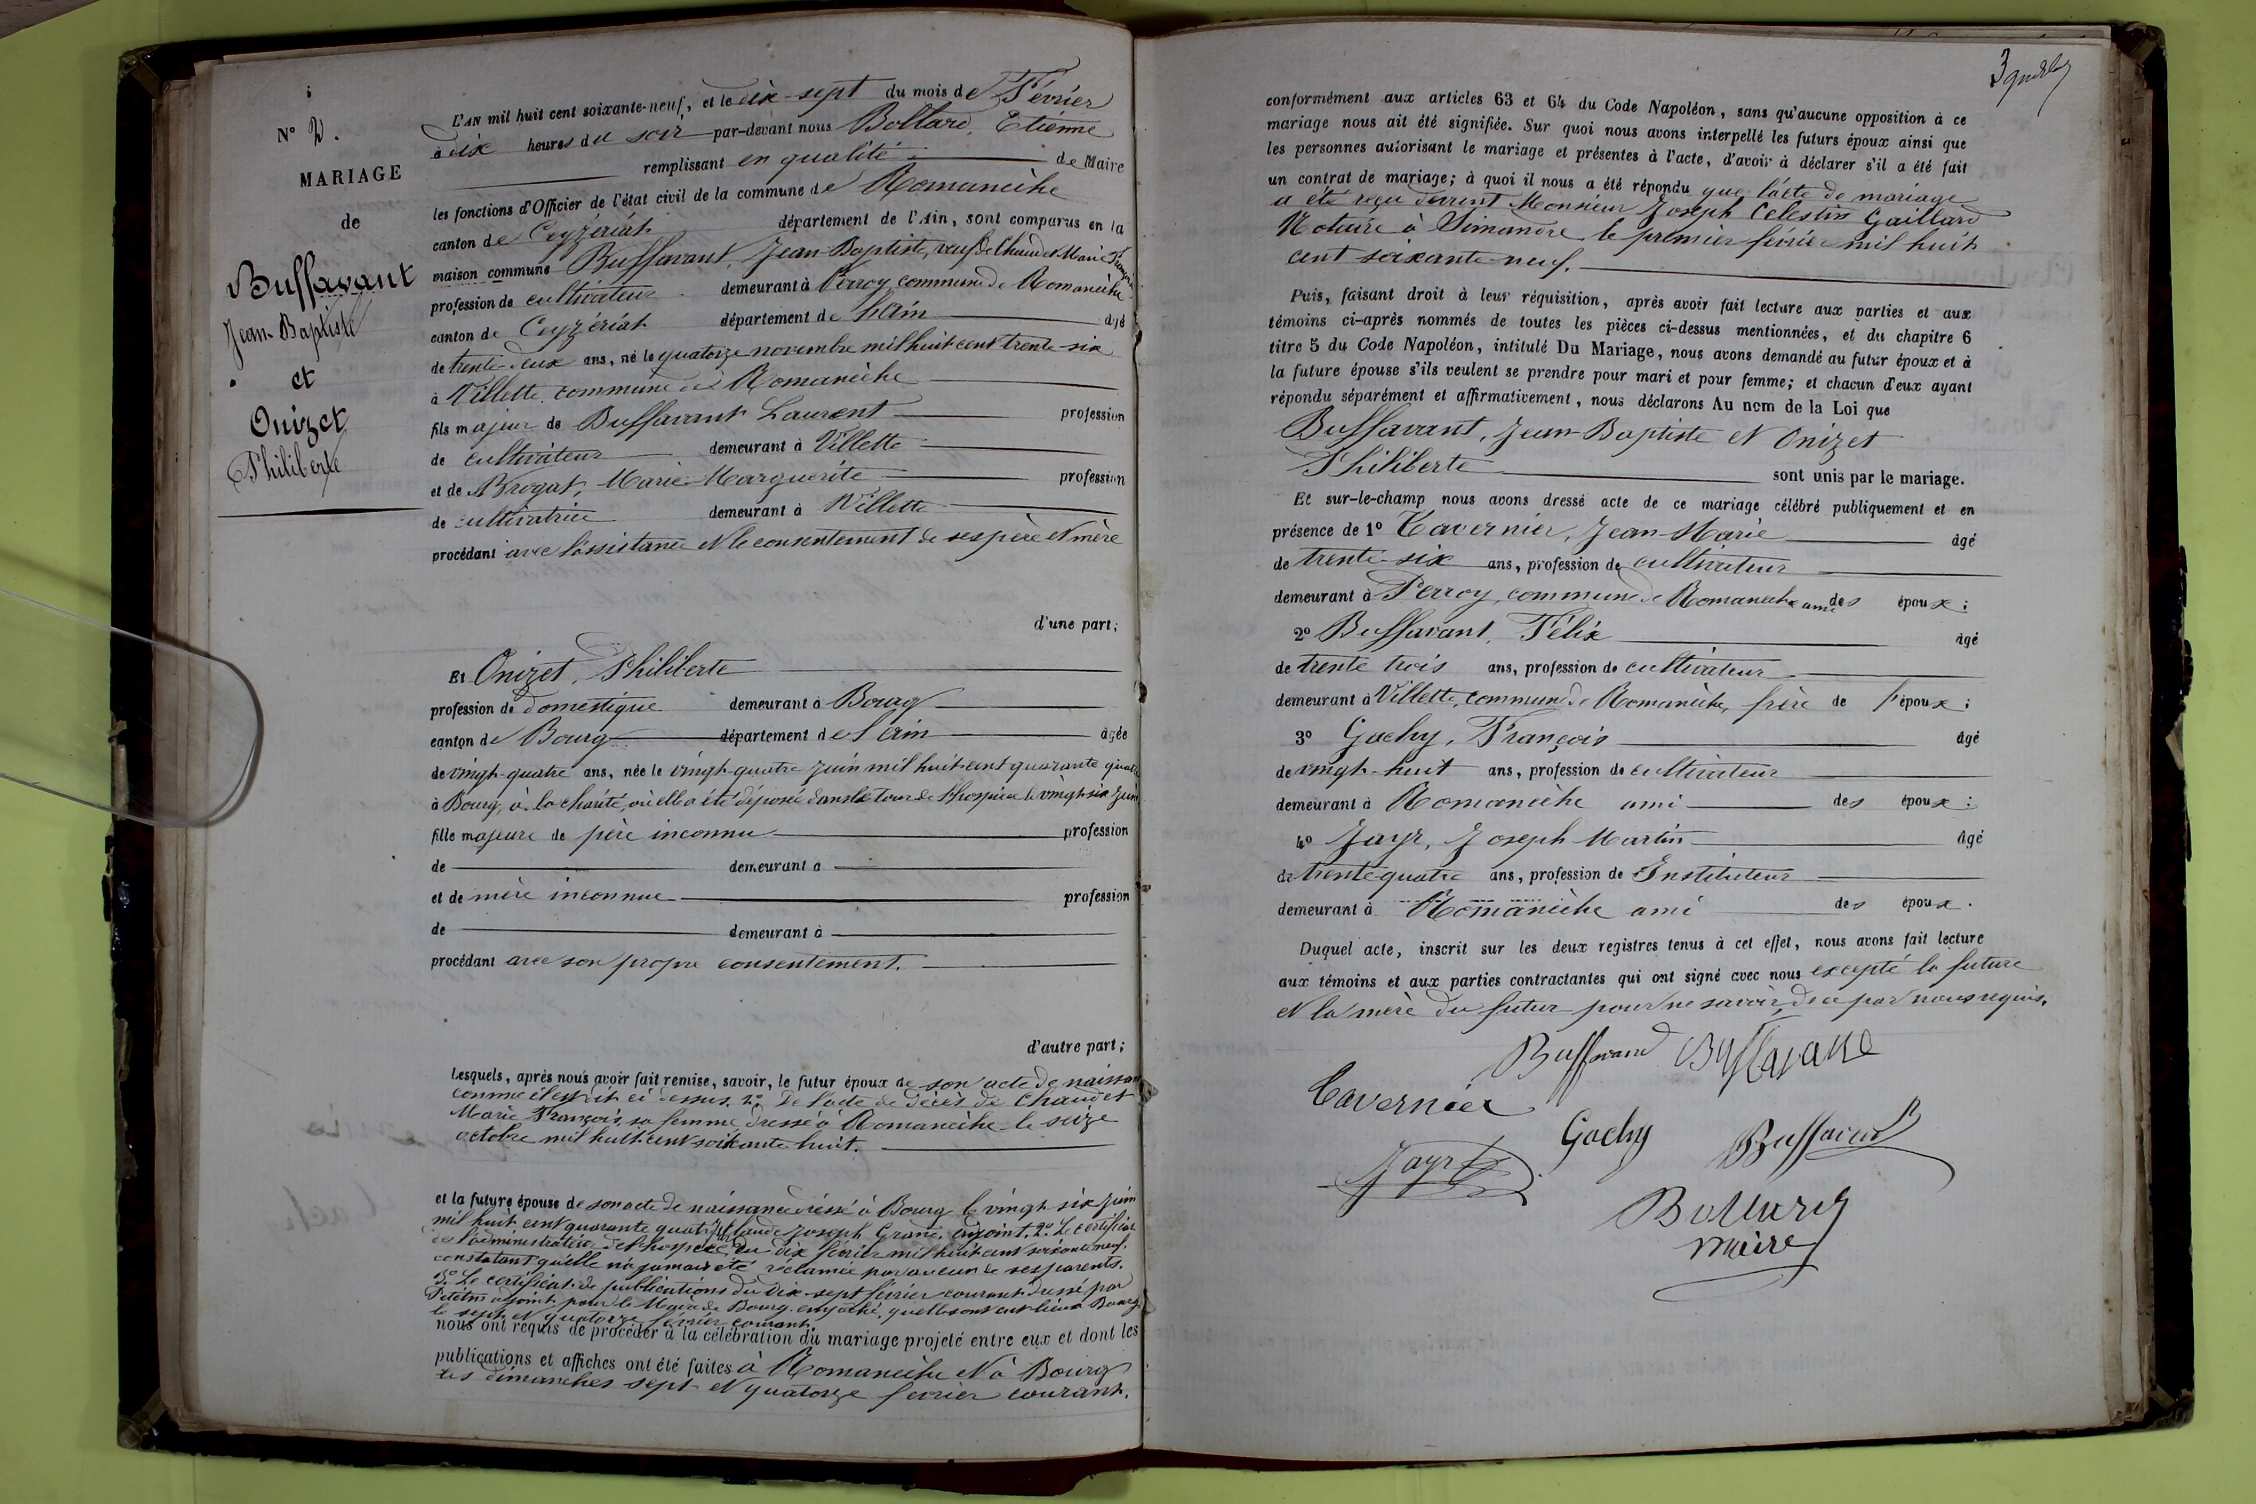 N° 2.
MARIAGE
de
Buffavant
Jean-Baptiste
et
Onizet
Philiberte
L'AN mil huit cent soixante-neuf, et le dix-sept du mois de Février
à dix heures du soir par-devant nous Bollard, Etienne
remplissant en qualité de Maire
les fonctions d'Officier de l'état civil de la commune de Romanèche
canton de Ceyzériat département de l'Ain, sont comparus en la
maison commune Buffavant, Jean-Baptiste, veuf de Chaudet Marie Françoise
profession de cultivateur demeurant à Perroy commune de Romanèche
canton de Ceyzériat département de l'Ain âgé
de trente-deux ans, né le quatorze novembre mil huit cent trente-six
à Villette commune de Romanèche
fils majeur de Buffavant Laurent profession
de cultivateur demeurant à Villette
et de Brogat, Marie-Marguerite profession
de cultivatrice demeurant à Villette
procédant avec l'assistance et le consentement de ses père et mère
d'une part;
Et Onizet, Philiberte
profession de domestique demeurant à Bourg
canton de Bourg département de l'Ain âgée
de vingt-quatre ans, née le vingt-quatre juin mil huit cent quarante quatre
à Bourg, à la charité, où elle a été déposée dans le tour de l'hospice le vingt six juin
fille majeure de père inconnu profession
de demeurant à
et de mère inconnue profession
de demeurant à
procédant avec son propre consentement.
d'autre part;
Lesquels, après nous avoir fait remise, savoir, le futur époux de son acte de naissance
comme il est dit ci-dessus. 2° De l'acte de décès de Chaudet
Marie Françoise, sa femme dressé à Romanèche le seize
octobre mil huit cent soixante huit.
et la future épouse de son acte de naissance dressé à Bourg le vingt six juin
mil huit cent quarante quatre Claude Joseph Grand, adjoint. 2° Le certificat
de l'administration de l'hospice du dix février mil huit cent soixante neuf,
constatant qu'elle n'a jamais été réclamée par aucun de ses parents.
3° Le certificat de publications du dix-sept février courant dressé par
adjoint pour le Maire de Bourg empêché, qu'elles ont eut lieu à Bourg
le sept et quatorze février courant.
nous ont requis de procéder à la célébration du mariage projeté entre eux et dont les
publications et affiches ont été faites à Romanèche et à Bourg
les dimanches sept et quatorze février courant.
3
conformément aux articles 63 et 64 du Code Napoléon, sans qu'aucune opposition à ce
mariage nous ait été signifiée. Sur quoi nous avons interpellé les futurs époux ainsi que
les personnes autorisant le mariage et présentes à l'acte, d'avoir à déclarer s'il a été fait
un contrat de mariage; à quoi il nous a été répondu que l'acte de mariage
a été reçu devant Monsieur Joseph Célestin Gaillard
Notaire à Simandre le premier février mil huit
cent soixante neuf.
Puis, faisant droit à leur réquisition, après avoir fait lecture aux parties et aux
témoins ci-après nommés de toutes les pièces ci-dessus mentionnées, et du chapitre 6
titre 5 du Code Napoléon, intitulé Du Mariage, nous avons demandé au futur époux et à
la future épouse s'ils veulent se prendre pour mari et pour femme; et chacun d'eux ayant
répondu séparément et affirmativement, nous déclarons Au nom de la Loi que
Buffavant, Jean-Baptiste et Onizet
Philiberte sont unis par le mariage.
Et sur-le-champ nous avons dressé acte de ce mariage célébré publiquement et en
présence de 1° Tavernier, Jean-Marie âgé
de trente-six ans, profession de cultivateur
demeurant à Perroy, commune de Romanèche ami des époux;
2° Buffavant, Félix âgé
de trente trois ans, profession de cultivateur
demeurant à Villette, commune de Romanèche, frère de l'époux;
3° Gachy, François âgé
de vingt-huit ans, profession de cultivateur
demeurant à Romanèche ami des époux;
4° Jayr, Joseph Martin âgé
de trente-quatre ans, profession de Instituteur
demeurant à Romanèche ami des époux.
Duquel acte, inscrit sur les deux registres tenus à cet effet, nous avons fait lecture
aux témoins et aux parties contractantes qui ont signé avec nous excepté la future
et la mère du futur pour ne savoir, de ce par nous requis.
Buffavand Buffavant
Tavernier
Gachy Buffavant
Jayr
Bollard
maire